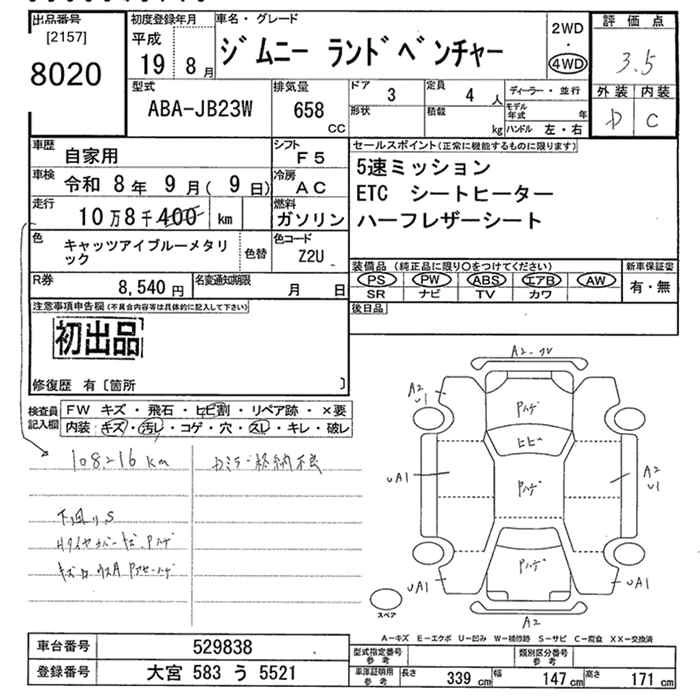 出品番号
[2157]
8020
初度登録年月
平成
19 8月
車名・グレード
ジムニー ランドベンチャー
2WD
・
4WD
評価点
3.5
外装 内装
C
型式
ABA-JB23W
排気量
658
CC
ドア
3
定員
4 人
形状
積載
kg
ディーラー・並行
モデル年式 年
ハンドル 左・右
車歴
自家用
シフト
F5
車検
令和 8年 9月(9日)
冷房
AC
走行
10万8千400 km
燃料
ガソリン
色
キャッツアイブルーメタリック
色替
色コード
Z2U
R券
8,540円
名変通知期限
月 日
セールスポイント(正常に機能するものに限ります)
5速ミッション
ETC シートヒーター
ハーフレザーシート
装備品(純正品に限り○をつけてください)
PS PW ABS エアB AW
SR ナビ TV カワ
新車保証書
有・無
後日品
注意事項申告欄(不具合内容等は具体的に記入して下さい)
初出品
修復歴 有〔箇所 〕
検査員記入欄
FW キズ・飛石・ヒビ割・リペア跡・×要
内装:キズ・汚レ・コゲ・穴・スレ・キレ・破レ
108,216km
カミラー格納不良
下回りS
A2
U1
Pハゲ
ヒビ
UA1
Pハゲ
A2
U1
Pハゲ
UA1
UA1
A2
スペア
A－キズ E－エクボ U－凹み W－補修跡 S－サビ C－腐食 XX－交換済
車台番号
529838
登録番号
大宮 583 う 5521
型式指定番号
参考
類別区分番号
参考
車庫証明用
参考
長さ 339 cm
幅 147 cm
高さ 171 cm